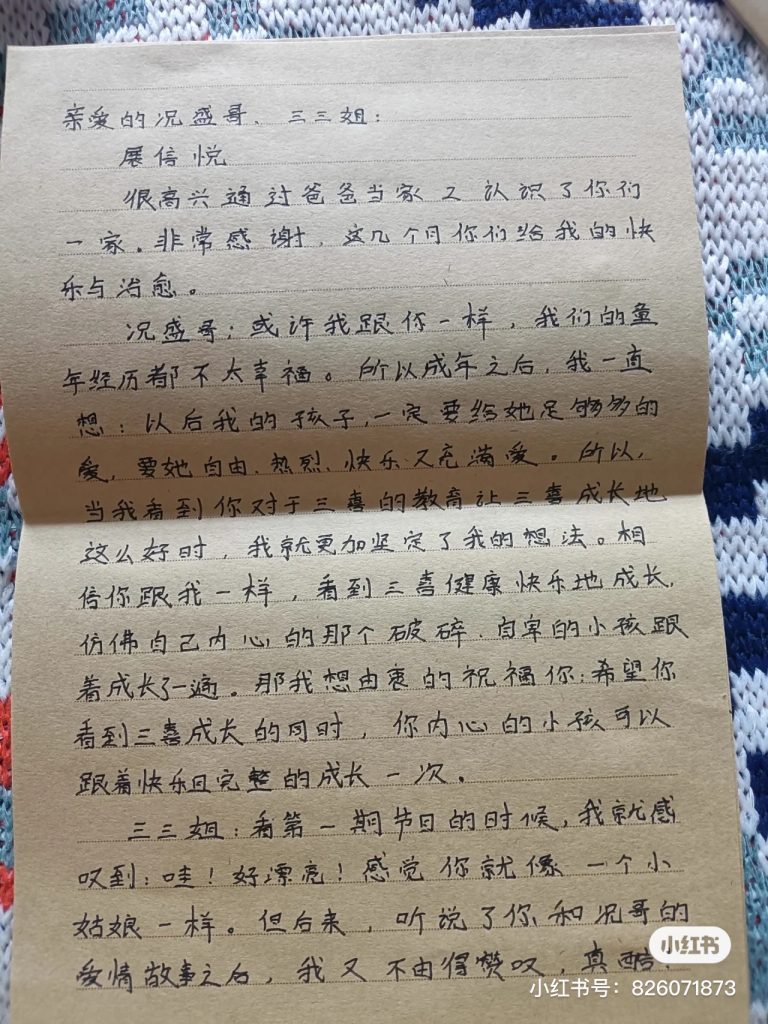 亲爱的况盛哥、三三姐：
展信悦
很高兴通过爸爸当家2认识了你们
一家。非常感谢，这几个月你们给我的快
乐与治愈。
况盛哥：或许我跟你一样，我们的童
年经历都不太幸福。所以成年之后，我一直
想：以后我的孩子，一定要给她足够多的
爱，要她自由、热烈、快乐又充满爱。所以，
当我看到你对于三喜的教育让三喜成长地
这么好时，我就更加坚定了我的想法。相
信你跟我一样，看到三喜健康快乐地成长，
仿佛自己内心的那个破碎、自卑的小孩跟
着成长了一遍。那我想由衷的祝福你：希望你
看到三喜成长的同时，你内心的小孩可以
跟着快乐且完整的成长一次。
三三姐：看第一期节目的时候，我就感
叹到：哇！好漂亮！感觉你就像一个小
姑娘一样。但后来，听说了你和况哥的
爱情故事之后，我又不由得赞叹，真酷、
小红书
小红书号：826071873